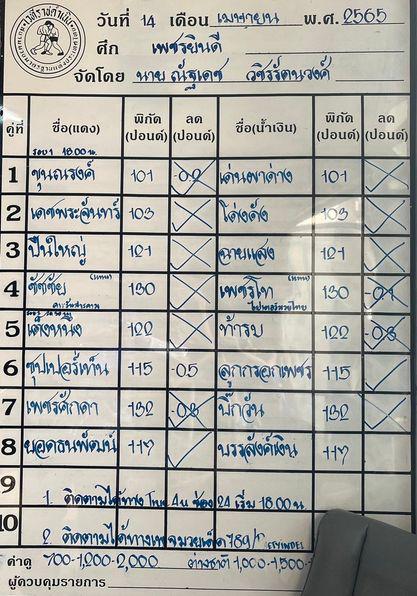 วันที่ 14 เดือน เมษายน พ.ศ. 2565
ศึก เพชรยินดี
จัดโดย นาย ณัฐเดช วชิรรัตนวงศ์
คู่ที่ ชื่อ(แดง) พิกัด (ปอนด์) ลด (ปอนด์) ชื่อ(น้ำเงิน) พิกัด (ปอนด์) ลด (ปอนด์)
รอบ 1 18.00 น.
1 ขุนณรงค์ 101 -0.2 เด่นผาด่าง 101
2 เดชพระจันทร์ 103 โด่งดัง 103
3 ปืนใหญ่ 121 ฉายแสง 121
4 ชัชชัย (แทน) 130 เพชรโท (แทน) 130 -0.1
5 เต็งหนึ่ง 122 ท้ารบ 122 -0.3
6 ซุปเปอร์เท็น 115 -0.5 ลูกกรอกเพชร 115
7 เพชรศักดา 132 -0.3 บิ๊กวัน 132
8 ยอดธนพัฒน์ 117 บรรลังค์เงิน 117
9 1. ติดตามได้ทาง True 4u ช่อง 24 เริ่ม 18.00น.
10 2. ติดตามได้ทางเพจมวยเด็ด 789/
ค่าดู 700-1,200-2,000 ต่างชาติ 1,000-1,500-
ผู้ควบคุมรายการ